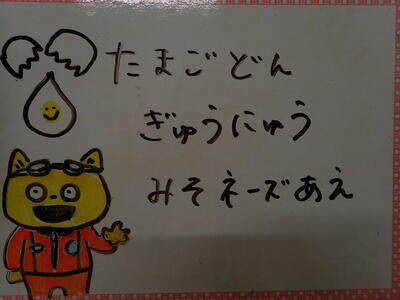 たまごどん
ぎゅうにゅう
みそネーズあえ